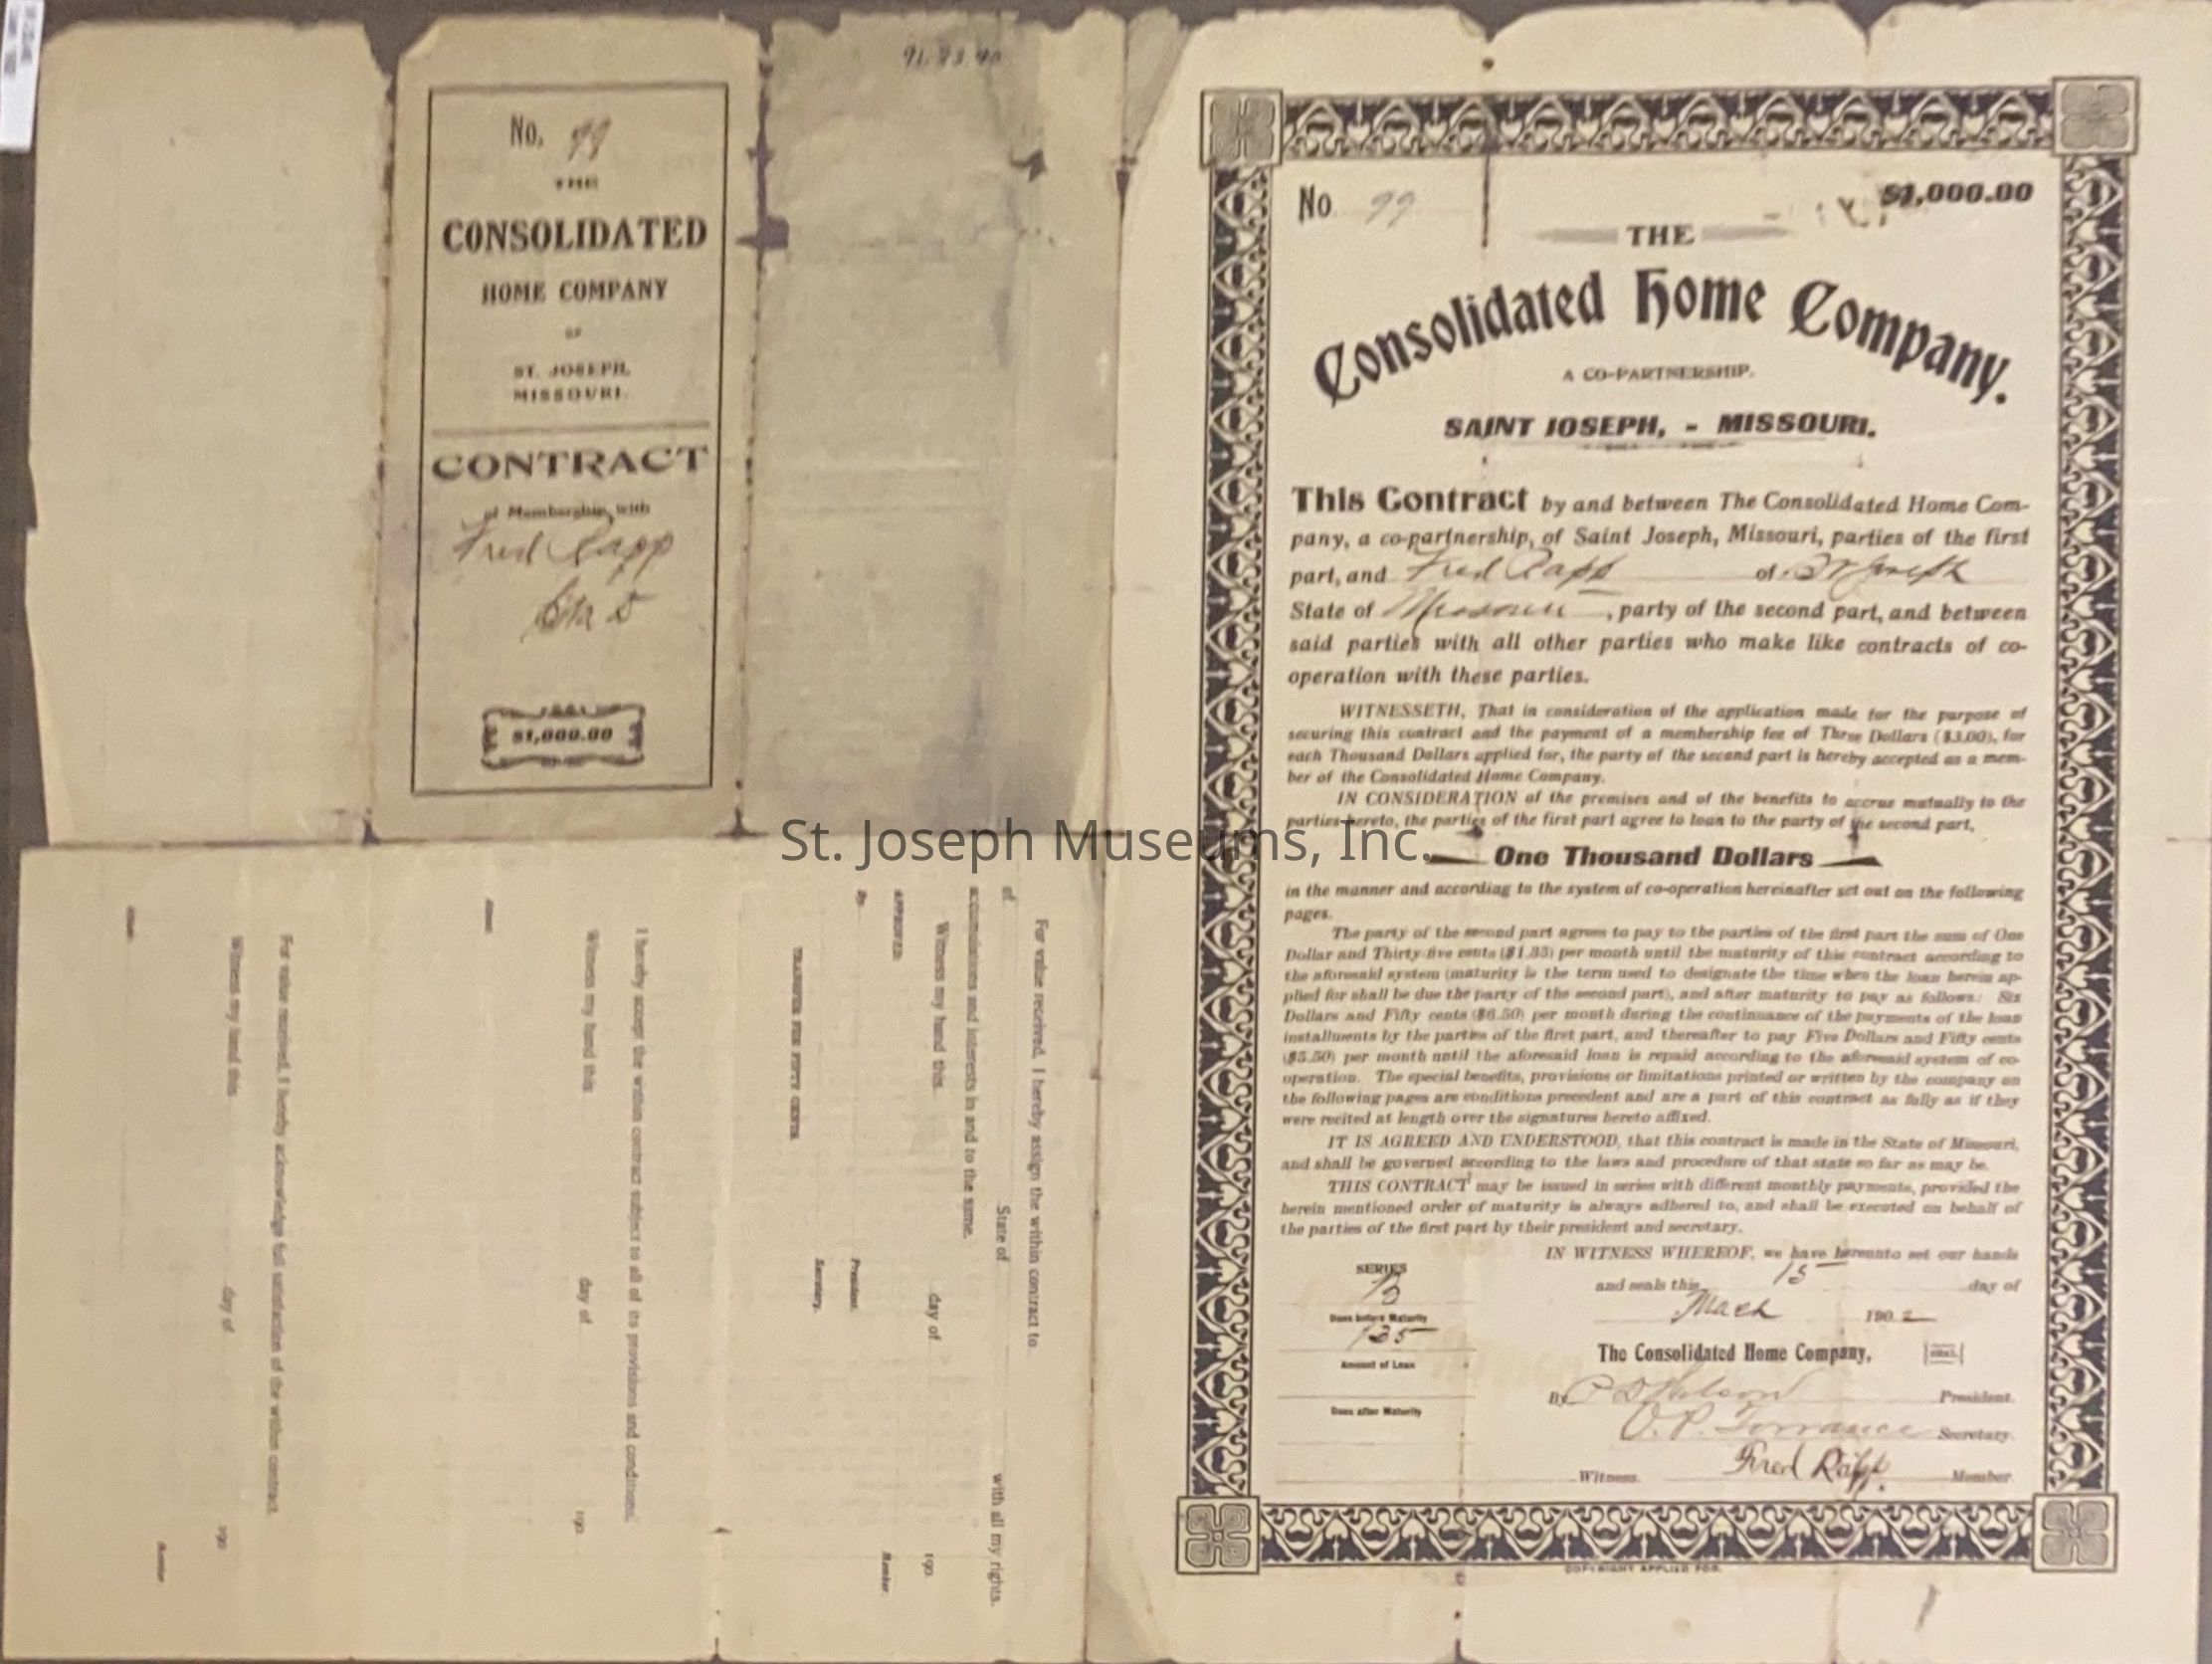 No. 99
THE
CONSOLIDATED
HOME COMPANY
OF
ST. JOSEPH,
MISSOURI.
CONTRACT
of Membership with
Fred Rapp
$1,000.00
For value received, I hereby assign the within contract to
of State of with all my rights,
accumulations and interests in and to the same.
Witness my hand this day of 190
Member.
APPROVED:
By President.
Secretary.
TRANSFER FEE FIFTY CENTS
I hereby accept the within contract subject to all of its provisions and conditions.
Witness my hand this day of 190
For value received, I hereby acknowledge full satisfaction of the within contract.
Witness my hand this day of 190
Member
No 99
$1,000.00
THE
Consolidated Home Company.
A CO-PARTNERSHIP.
SAINT JOSEPH, - MISSOURI.
This Contract by and between The Consolidated Home Com-
pany, a co-partnership, of Saint Joseph, Missouri, parties of the first
part, and Fred Rapp of St Joseph
State of Missouri, party of the second part, and between
said parties with all other parties who make like contracts of co-
operation with these parties.
WITNESSETH, That in consideration of the application made for the purpose of
securing this contract and the payment of a membership fee of Three Dollars ($3.00), for
each Thousand Dollars applied for, the party of the second part is hereby accepted as a mem-
ber of the Consolidated Home Company.
IN CONSIDERATION of the premises and of the benefits to accrue mutually to the
parties hereto, the parties of the first part agree to loan to the party of the second part,
One Thousand Dollars
in the manner and according to the system of co-operation hereinafter set out on the following
pages.
The party of the second part agrees to pay to the parties of the first part the sum of One
Dollar and Thirty-five cents ($1.35) per month until the maturity of this contract according to
the aforesaid system (maturity is the term used to designate the time when the loan herein ap-
plied for shall be due the party of the second part), and after maturity to pay as follows: Six
Dollars and Fifty cents ($6.50) per month during the continuance of the payments of the loan
installments by the parties of the first part, and thereafter to pay Five Dollars and Fifty cents
($5.50) per month until the aforesaid loan is repaid according to the aforesaid system of co-
operation. The special benefits, provisions or limitations printed or written by the company on
the following pages are conditions precedent and are a part of this contract as fully as if they
were recited at length over the signatures hereto affixed.
IT IS AGREED AND UNDERSTOOD, that this contract is made in the State of Missouri,
and shall be governed according to the laws and procedure of that state so far as may be.
THIS CONTRACT may be issued in series with different monthly payments, provided the
herein mentioned order of maturity is always adhered to, and shall be executed on behalf of
the parties of the first part by their president and secretary.
IN WITNESS WHEREOF, we have hereunto set our hands
and seals this 15 day of
March 1902
SERIES
B
Dues before Maturity
135
Amount of Loan
Dues after Maturity
The Consolidated Home Company, SEAL
By President.
O. P. Torrance Secretary.
Witness. Fred Rapp. Member
COPYRIGHT APPLIED FOR.
St. Joseph Museums, Inc.